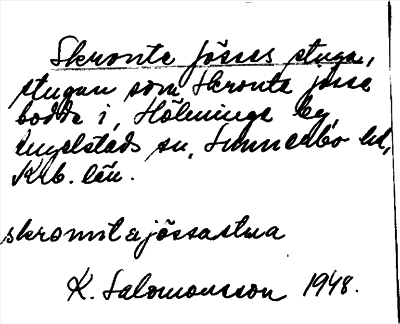 Skronta jösses stuga,
stugan som Skronta jösse
bodde i, Hölminge by,
Ingelstads sn, Sunnerbo hd,
Krb. län.
skrontajössastua
K. Salomonsson 1948.